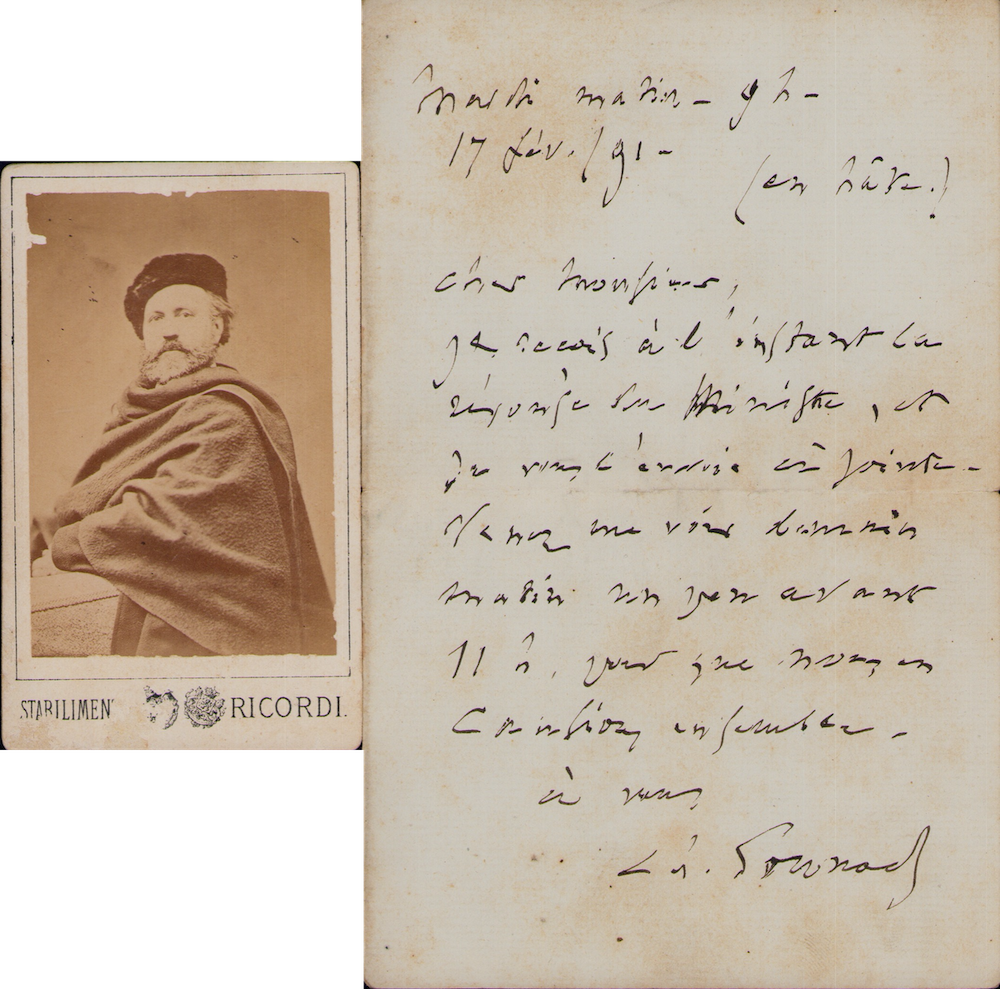 STABILIMEN
RICORDI.
Mardi matin - 9 h -
17 fév. / 91 -
(en hâte.)
cher Monsieur,
je reçois à l'instant la
réponse du Ministre, et
je vous l'envoie ci jointe -
Venez me voir demain
matin un peu avant
11 h. pour que nous en
causions ensemble.
à vous
Ch. Gounod